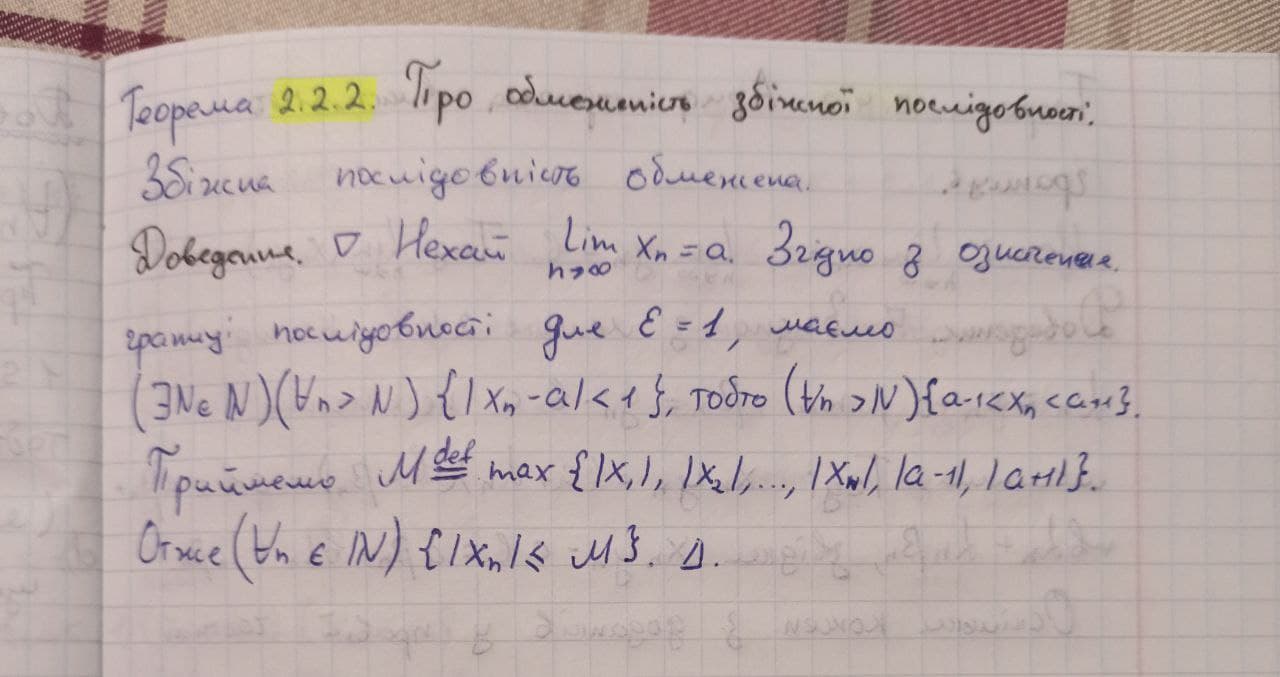 Теорема 2.2.2. Про обмеженість збіжної послідовності.
Збіжна послідовність обмежена.
Доведення. ∇ Нехай lim n→∞ xₙ = a. Згідно з означення
границі послідовності для ε = 1, маємо
(∃N ∈ ℕ)(∀n > N) {|xₙ - a| < 1}, тобто (∀n > N){a-1 < xₙ < a+1}.
Приймемо M def= max {|x₁|, |x₂|, ..., |x_N|, |a-1|, |a+1|}.
Отже (∀n ∈ ℕ) {|xₙ| ≤ M}. Δ.